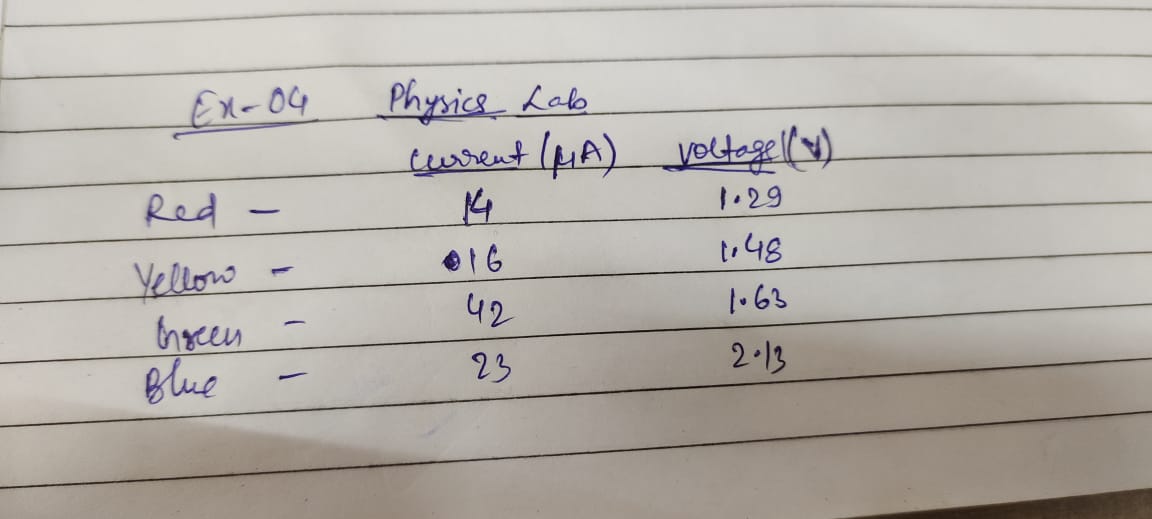 Ex-04 Physics Lab
Current (μA) Voltage (V)
Red - 14 1.29
Yellow - 16 1.48
Green - 42 1.63
Blue - 23 2.13